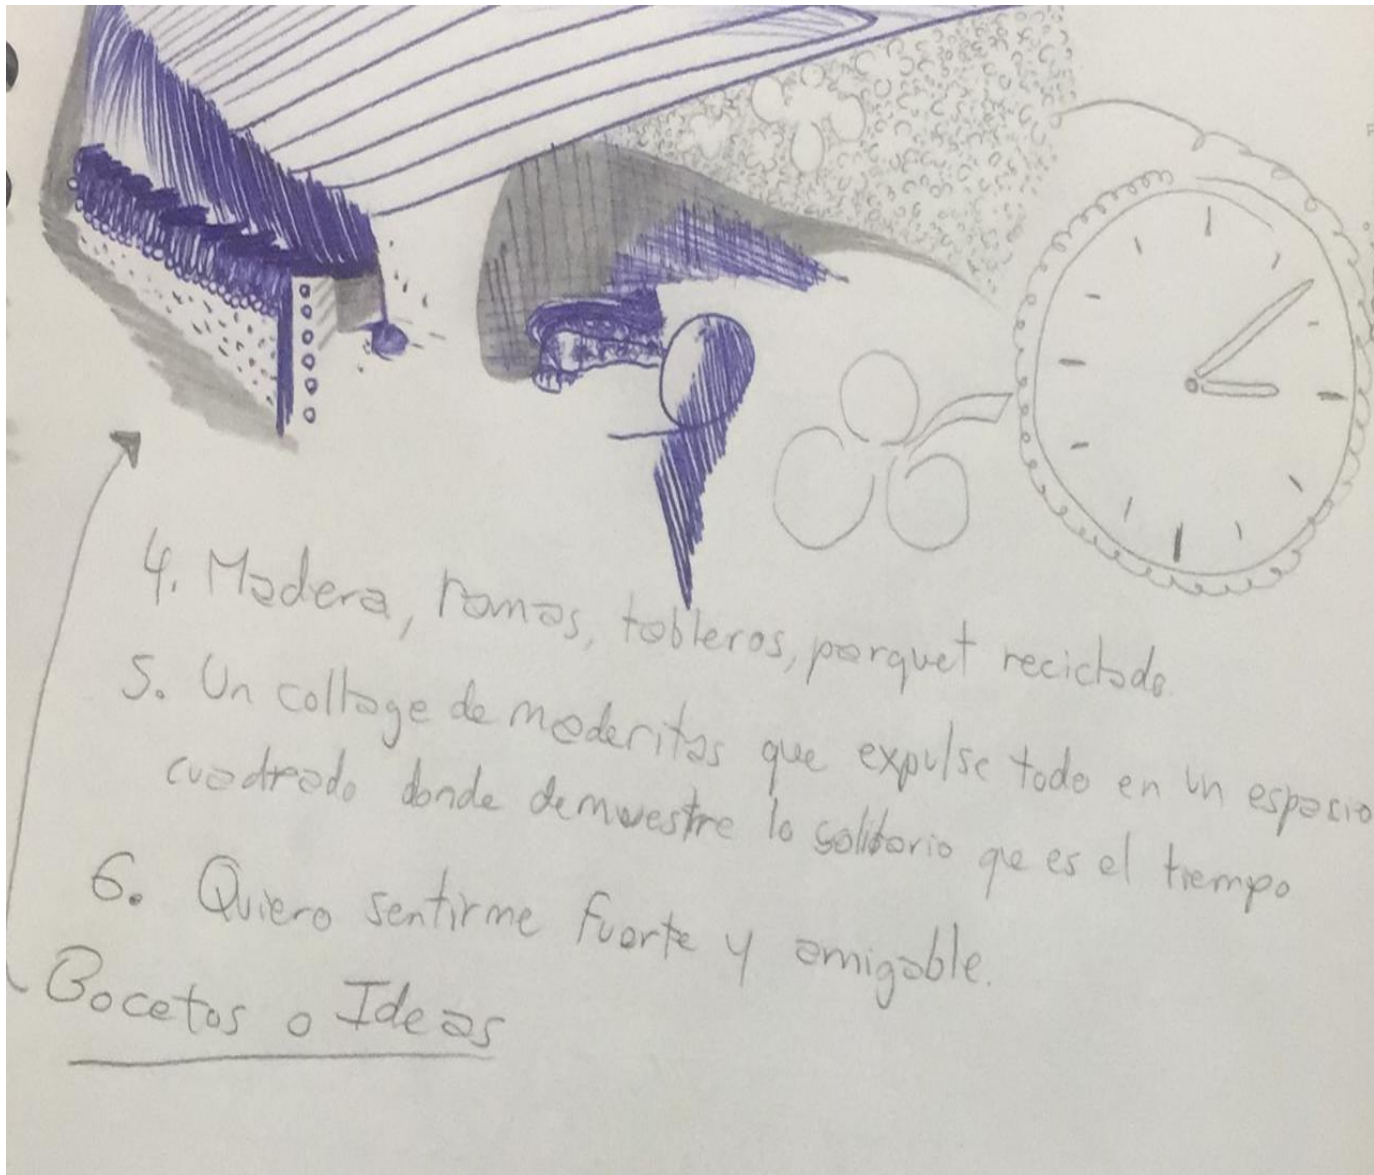 4. Madera, ramas, tableros, parquet reciclado.
5. Un collage de maderitas que expulse todo en un espacio
cuadrado donde demuestre lo solitario que es el tiempo
6. Quiero sentirme fuerte y amigable.
Bocetos o Ideas